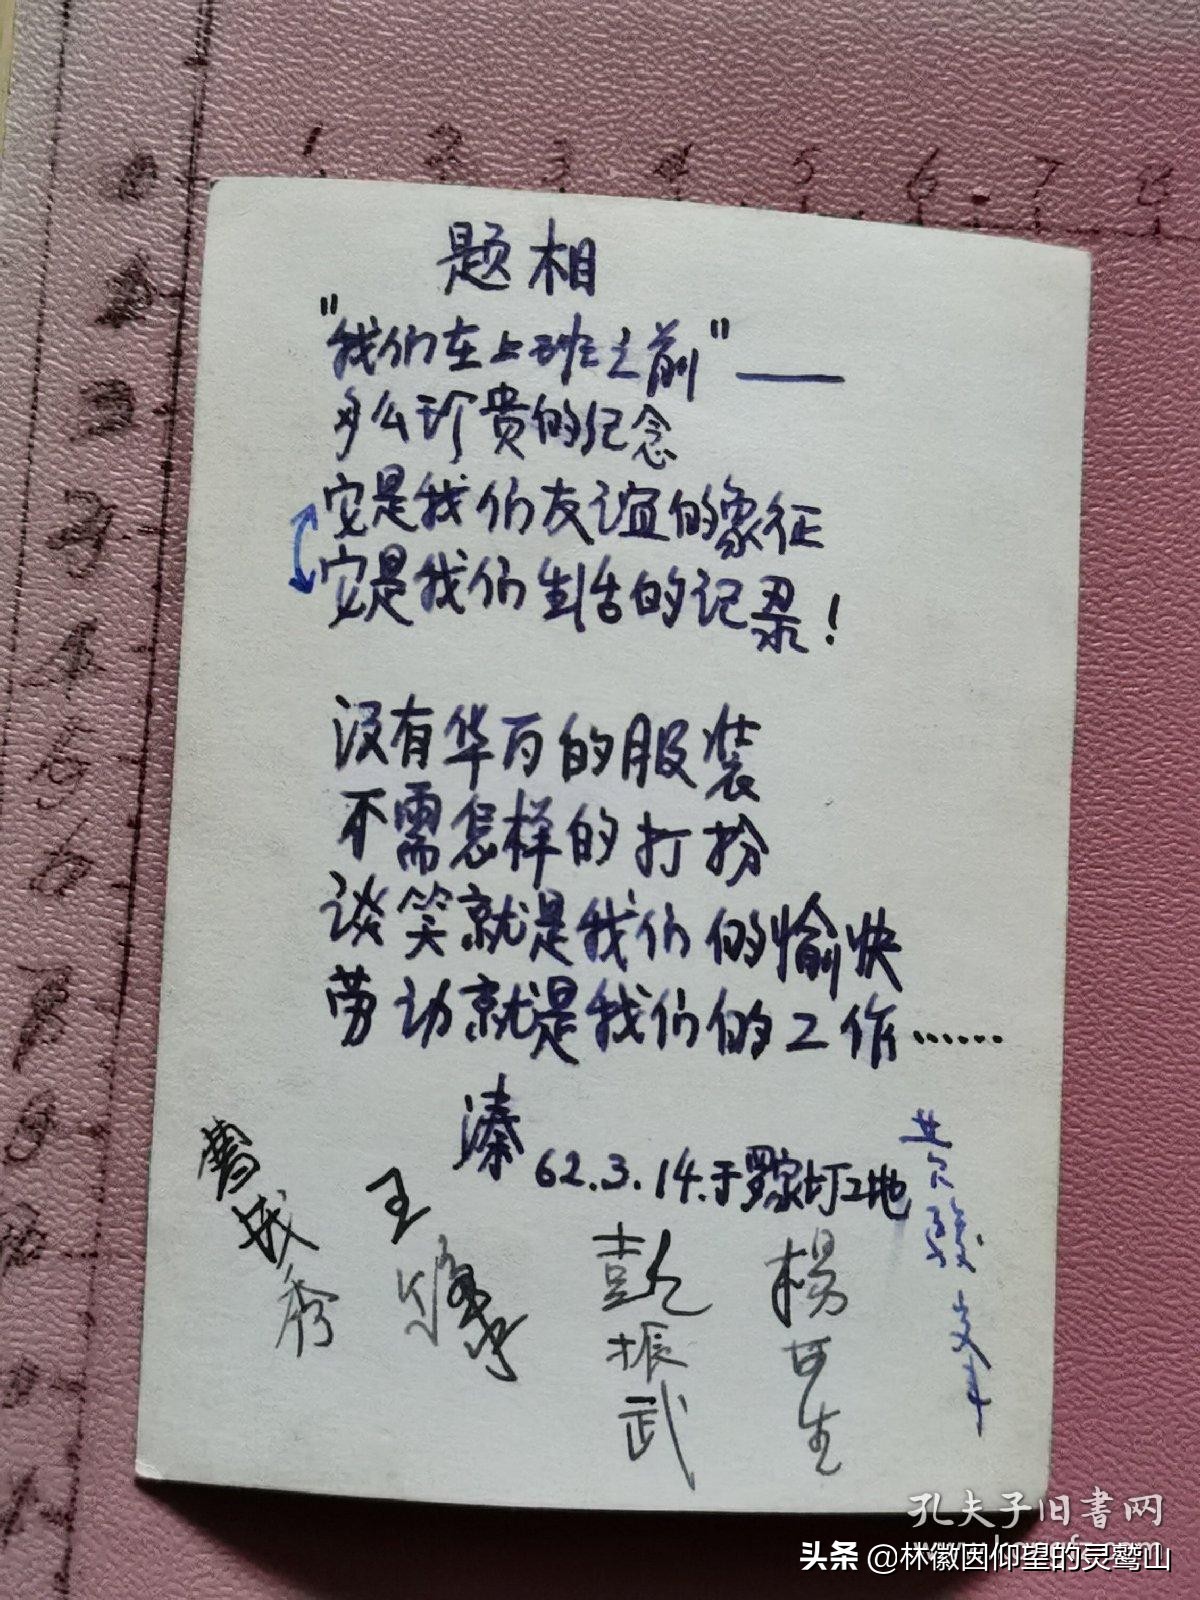 1 2 3 4 5 6 7 8
题相
"我们在上班之前"——
多么珍贵的纪念
它是我们友谊的象征
它是我们生活的记录!
没有华丽的服装
不需怎样的打扮
谈笑就是我们的愉快
劳动就是我们的工作……
溱
62.3.14.于罗家圩工地
曹成秀
王
彭振武
杨
生
孔夫子旧书网
头条 @林徽因仰望的灵鹫山